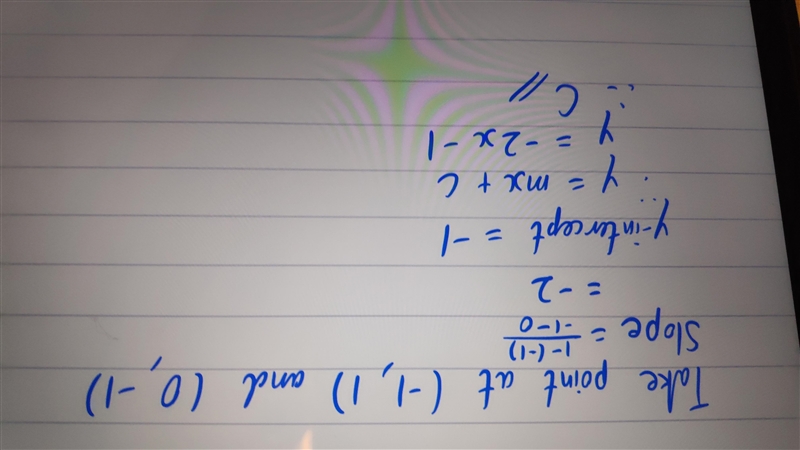 Take point at (-1, 1) and (0, -1)
Slope = 1-(-1) / -1-0
= -2
y-intercept = -1
∴ y = mx + c
y = -2x -1
∴ C //